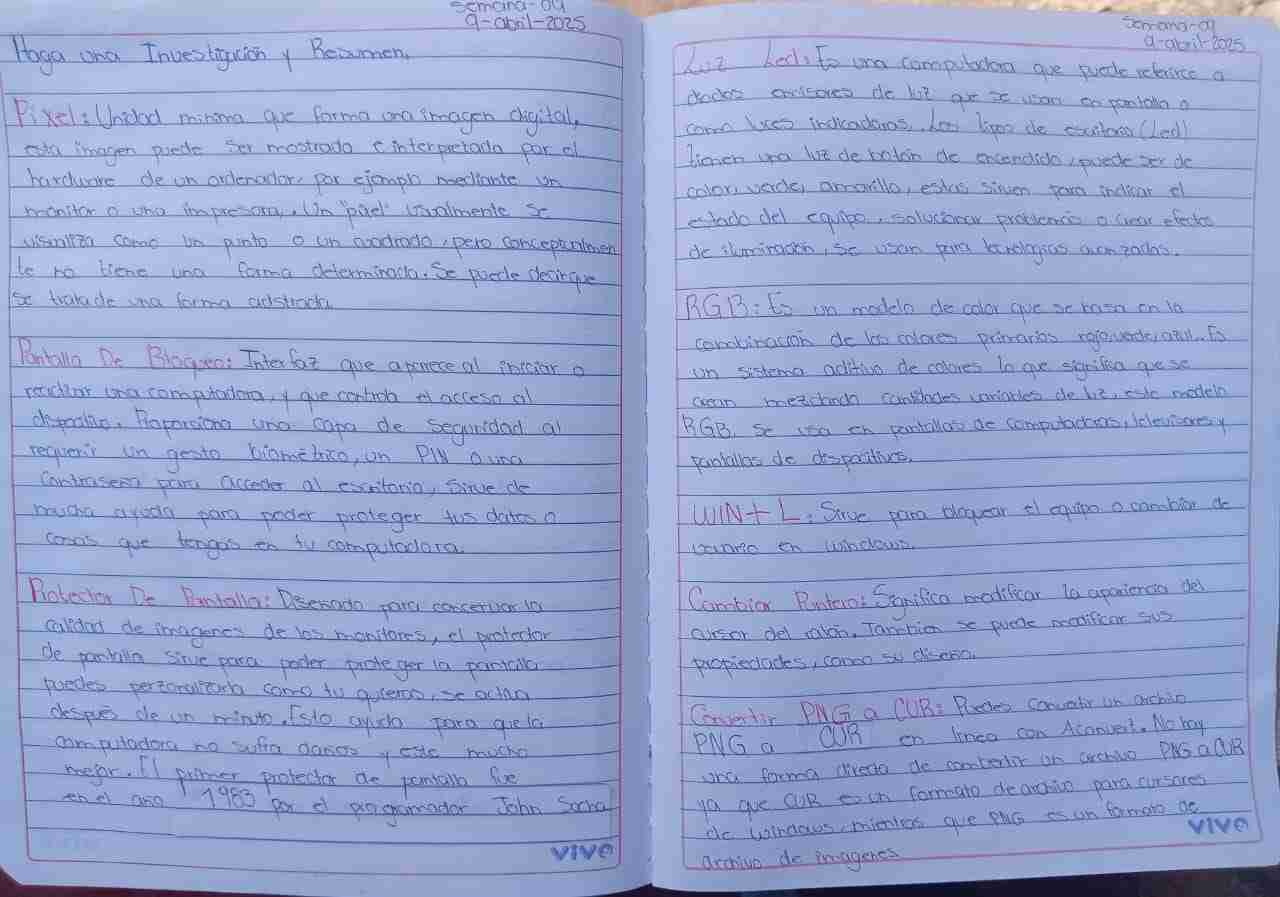 Semana-09
9-abril-2025
Haga una Investigación y Resumen.
Pixel: Unidad minima que forma una imagen digital,
esta imagen puede ser mostrada e interpretada por el
hardware de un ordenador, por ejemplo mediante un
monitor o una impresora. Un "pixel" usualmente se
visualiza como un punto o un cuadrado, pero conceptualmen
te no tiene una forma determinada. Se puede decir que
se trata de una forma adstracta.
Pantalla De Bloqueo: Interfaz que aparece al iniciar o
reactivar una computadora, y que controla el acceso al
dispositivo. Proporciona una capa de seguridad al
requerir un gesto biométrico, un PIN o una
contraseña para acceder al escritorio, Sirve de
mucha ayuda para poder proteger tus datos o
cosas que tengas en tu computadora.
Protector De Pantalla: Diseñado para concervar la
calidad de imagenes de los monitores, el protector
de pantalla sirve para poder proteger la pantalla
puedes perzonalizarla como tu quieras, se activa
después de un minuto. Esto ayuda para que la
computadora no sufra daños y este mucho
mejor. El primer protector de pantalla fue
en el año 1983 por el programador John Socha
vivo
Semana-09
9-abril-2025
Luz Led: Es una computadora que puede referirce a
diodos emisores de luz que se usan en pantalla o
como luces indicadoras. Los tipos de escritorio (Led)
tienen una luz de botón de encendido, puede ser de
color, verde, amarillo, estas sirven para indicar el
estado del equipo, solucionar problemas o crear efecto
de iluminación, se usan para tecnologias avanzadas.
RGB: Es un modelo de color que se basa en la
combinación de los colores primarios rojo, verde, azul. Es
un sistema aditivo de colores lo que significa que se
crean mezclando cantidades variables de luz, este modelo
RGB. Se usa en pantallas de computadoras, televisores y
pantallas de dispositivos.
WIN + L: Sirve para bloquear el equipo o cambiar de
usuario en windows.
Cambiar Puntero: Significa modificar la apariencia del
cursor del ratón. Tambien se puede modificar sus
propiedades, como su diseño.
Convertir PNG a CUR: Puedes convertir un archivo
PNG a CUR en linea con Aconvert. No hay
una forma directa de combertir un archivo PNG a CUR
ya que CUR es un formato de archivo para cursores
de windows, mientras que PNG es un formato de
archivo de imagenes
vivo